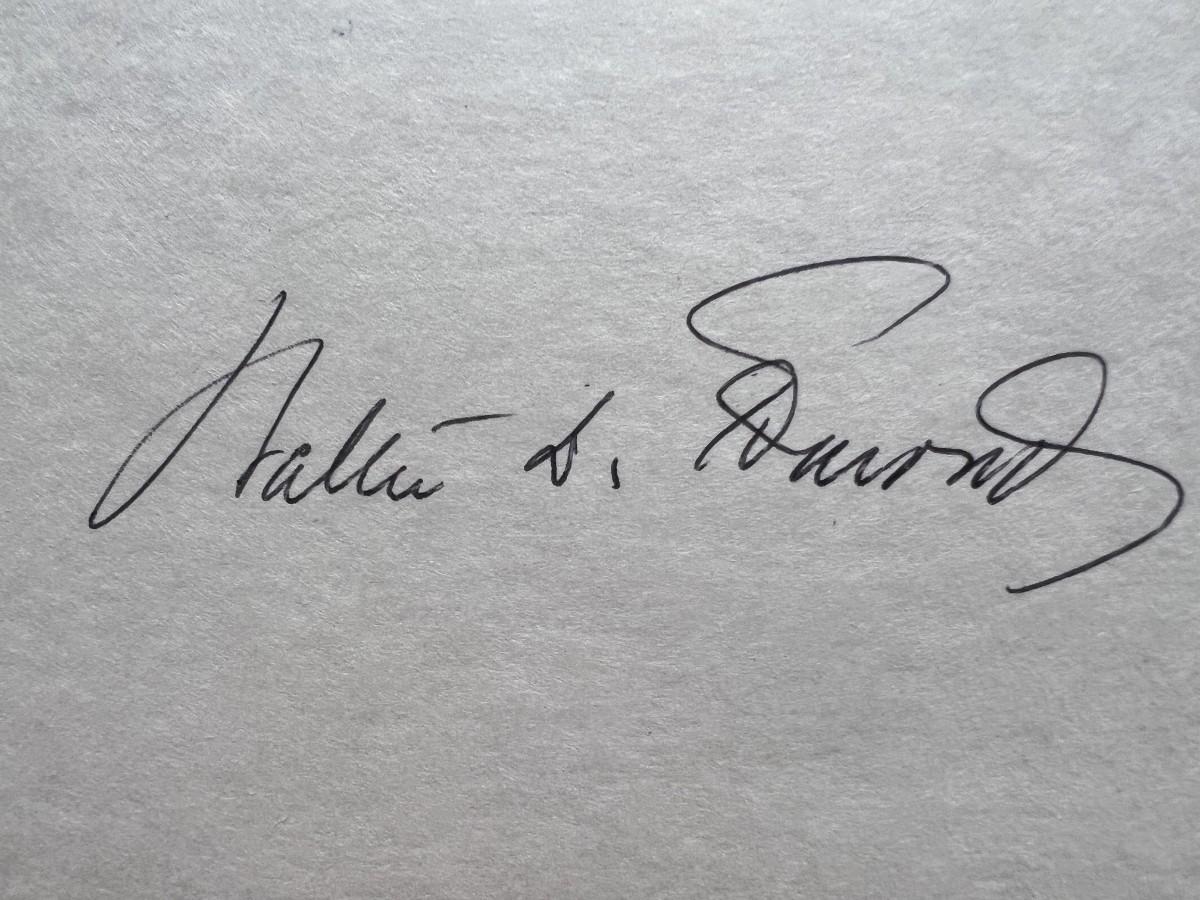 Walter D. Edmonds